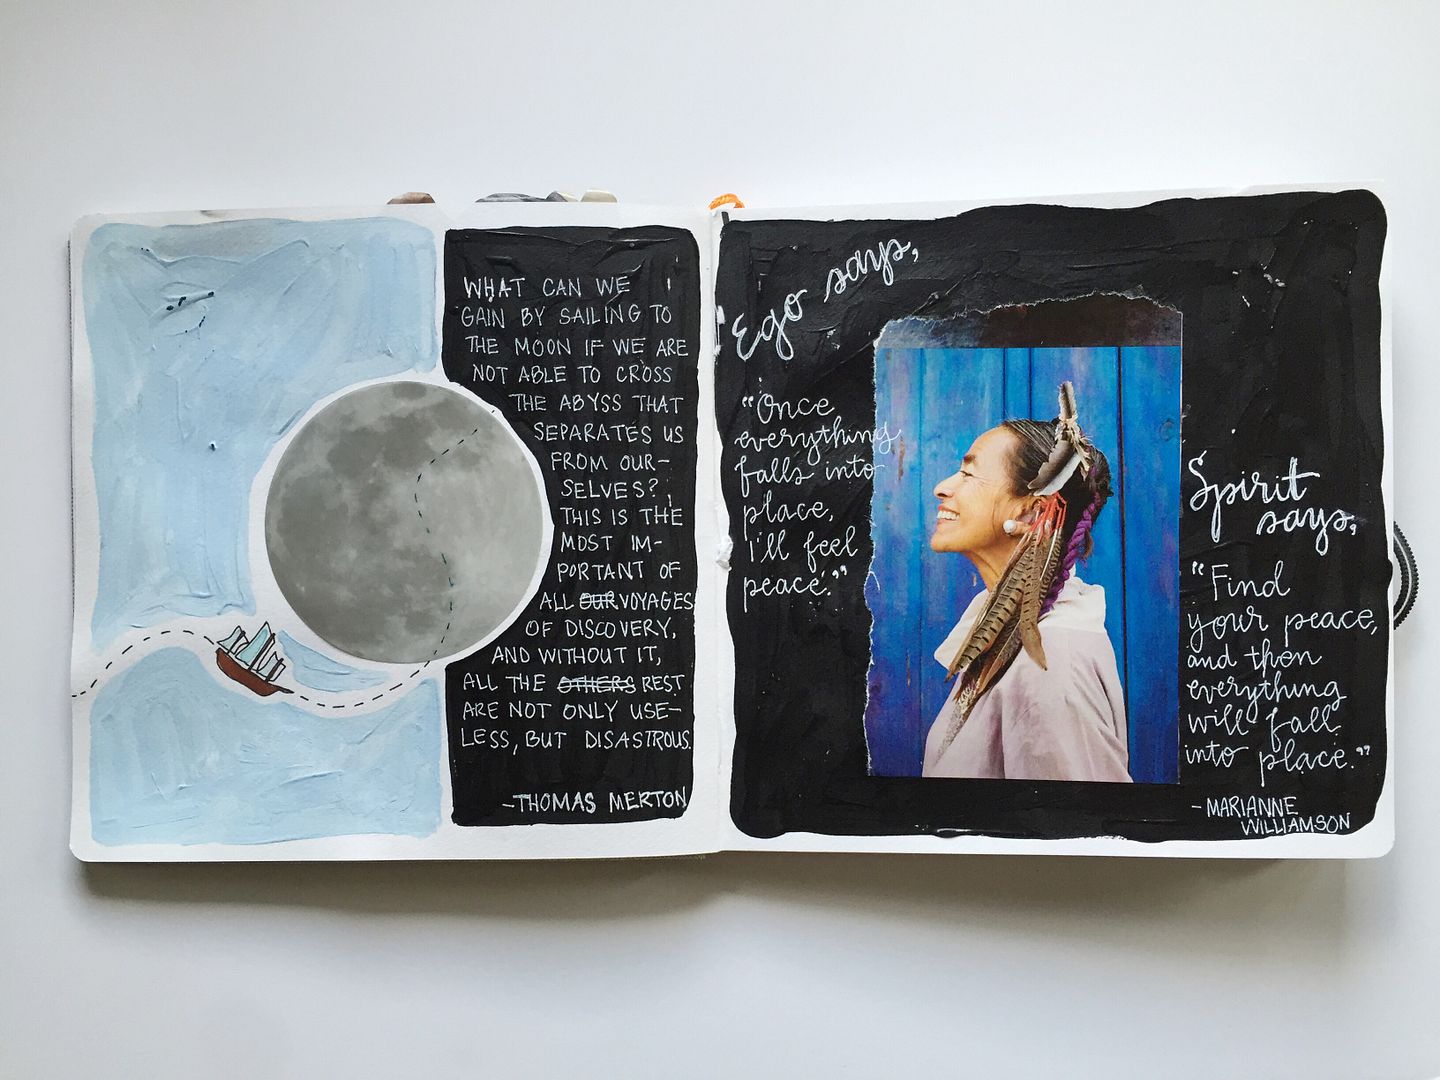 WHAT CAN WE
GAIN BY SAILING TO
THE MOON IF WE ARE
NOT ABLE TO CROSS
THE ABYSS THAT
SEPARATES US
FROM OUR-
SELVES?
THIS IS THE
MOST IM-
PORTANT OF
ALL OUR VOYAGES
OF DISCOVERY,
AND WITHOUT IT,
ALL THE OTHERS REST
ARE NOT ONLY USE-
LESS, BUT DISASTROUS.
-THOMAS MERTON
Ego says,
"Once
everything
falls into
place,
i'll feel
peace."
Spirit
says,
"Find
your peace,
and then
everything
will fall
into place."
-MARIANNE
WILLIAMSON